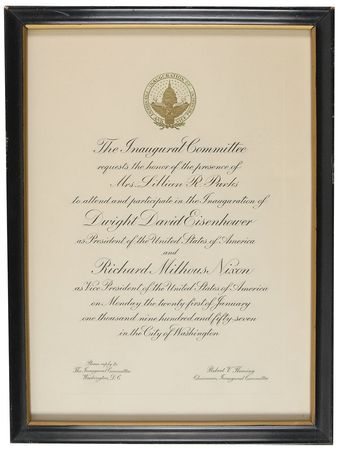 The Inaugural Committee
requests the honor of the presence of
Mrs. Lillian R. Parks
to attend and participate in the Inauguration of
Dwight David Eisenhower
as President of the United States of America
and
Richard Milhous Nixon
as Vice President of the United States of America
on Monday the twenty first of January
one thousand nine hundred and fifty seven
in the City of Washington
Please reply to
The Inaugural Committee
Washington, D.C.
Robert V. Fleming
Chairman, Inaugural Committee